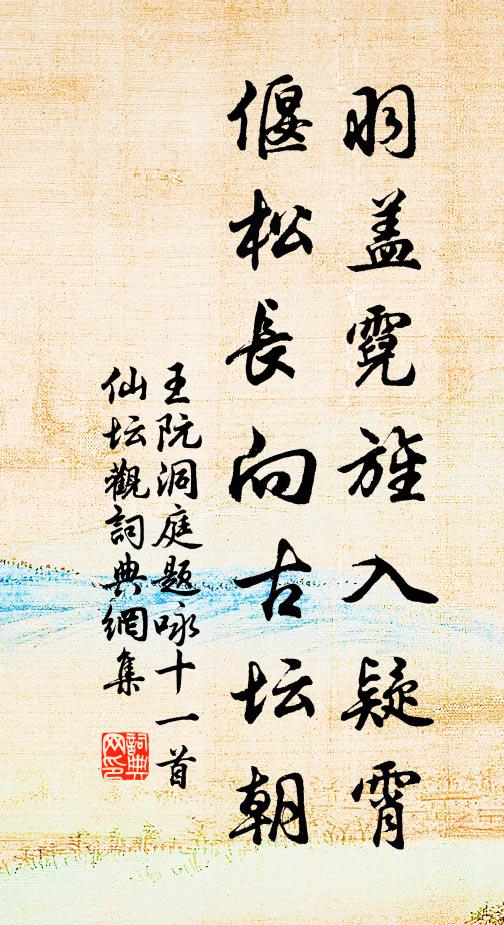 羽盖霓旌入疑霄
偃松長向古坛朝
王阮洞庭题咏十一首
仙坛觀詞典網集
詞典网印